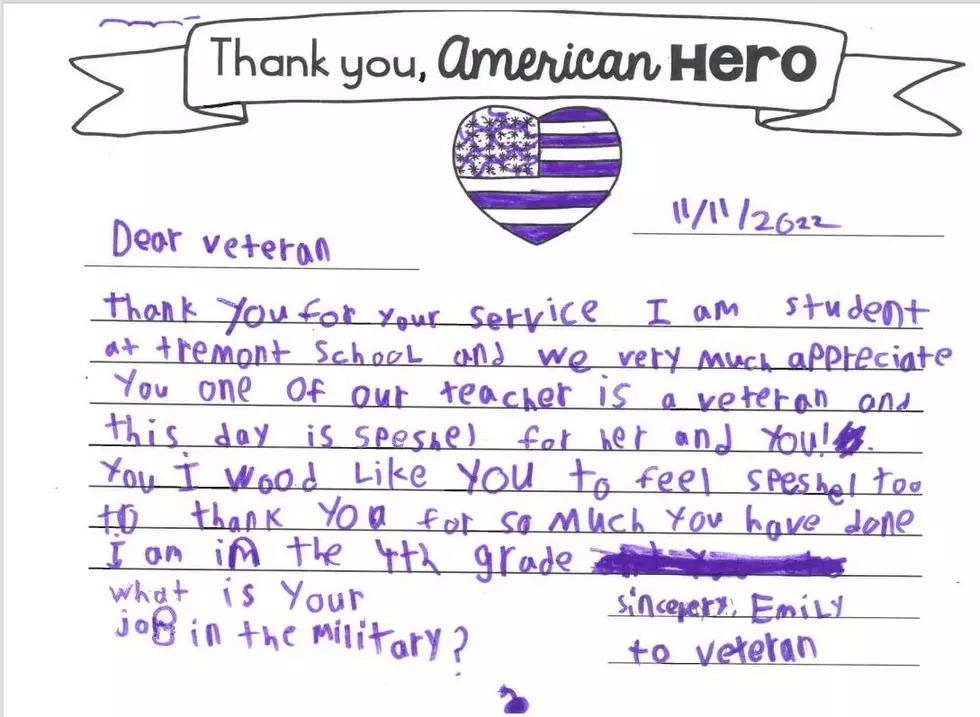 Thank you, American Hero
11/11/2022
Dear veteran
thank you for your service I am student
at tremont school and we very much appreciate
You one of our teacher is a veteran and
this day is speshel for her and you!
You I wood Like YOU to feel speshel too
to thank YOU for so much you have done
I am in the 4th grade
what is Your
job in the military?
sincepery, Emily
to veteran